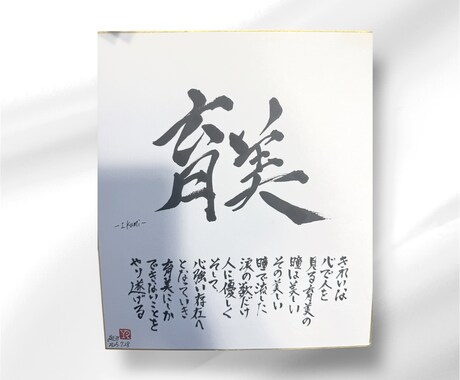 育美
-Ikumi-
きれいな
心で人を
見る育美の
瞳は美しい
その美しい
瞳で流した
涙の数だけ
人に優しく
そして、
心強い存在へ
となっていき
育美にしか
できないことを
やり遂げる